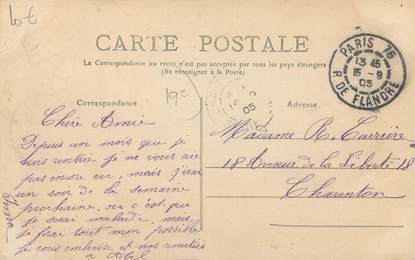 10€
CARTE POSTALE
La Correspondance au recto n'est pas acceptée par tous les pays étrangers
(Se renseigner à la Poste)
PARIS 76
13 45
15-9
05
R. DE FLANDRE
19e
05
Correspondance
Adresse
Chère Amie
Depuis un mois que je
suis rentrée je ne vous ai
pas encore vu, mais j'irai
un soir de la semaine
prochaine, ou c'est que
je serai malade, mais
je ferai tout mon possible
je vous embrasse et nos amitiés
à Abel
Madame R. Carrière
18 Avenue de la Liberté 18
Charenton